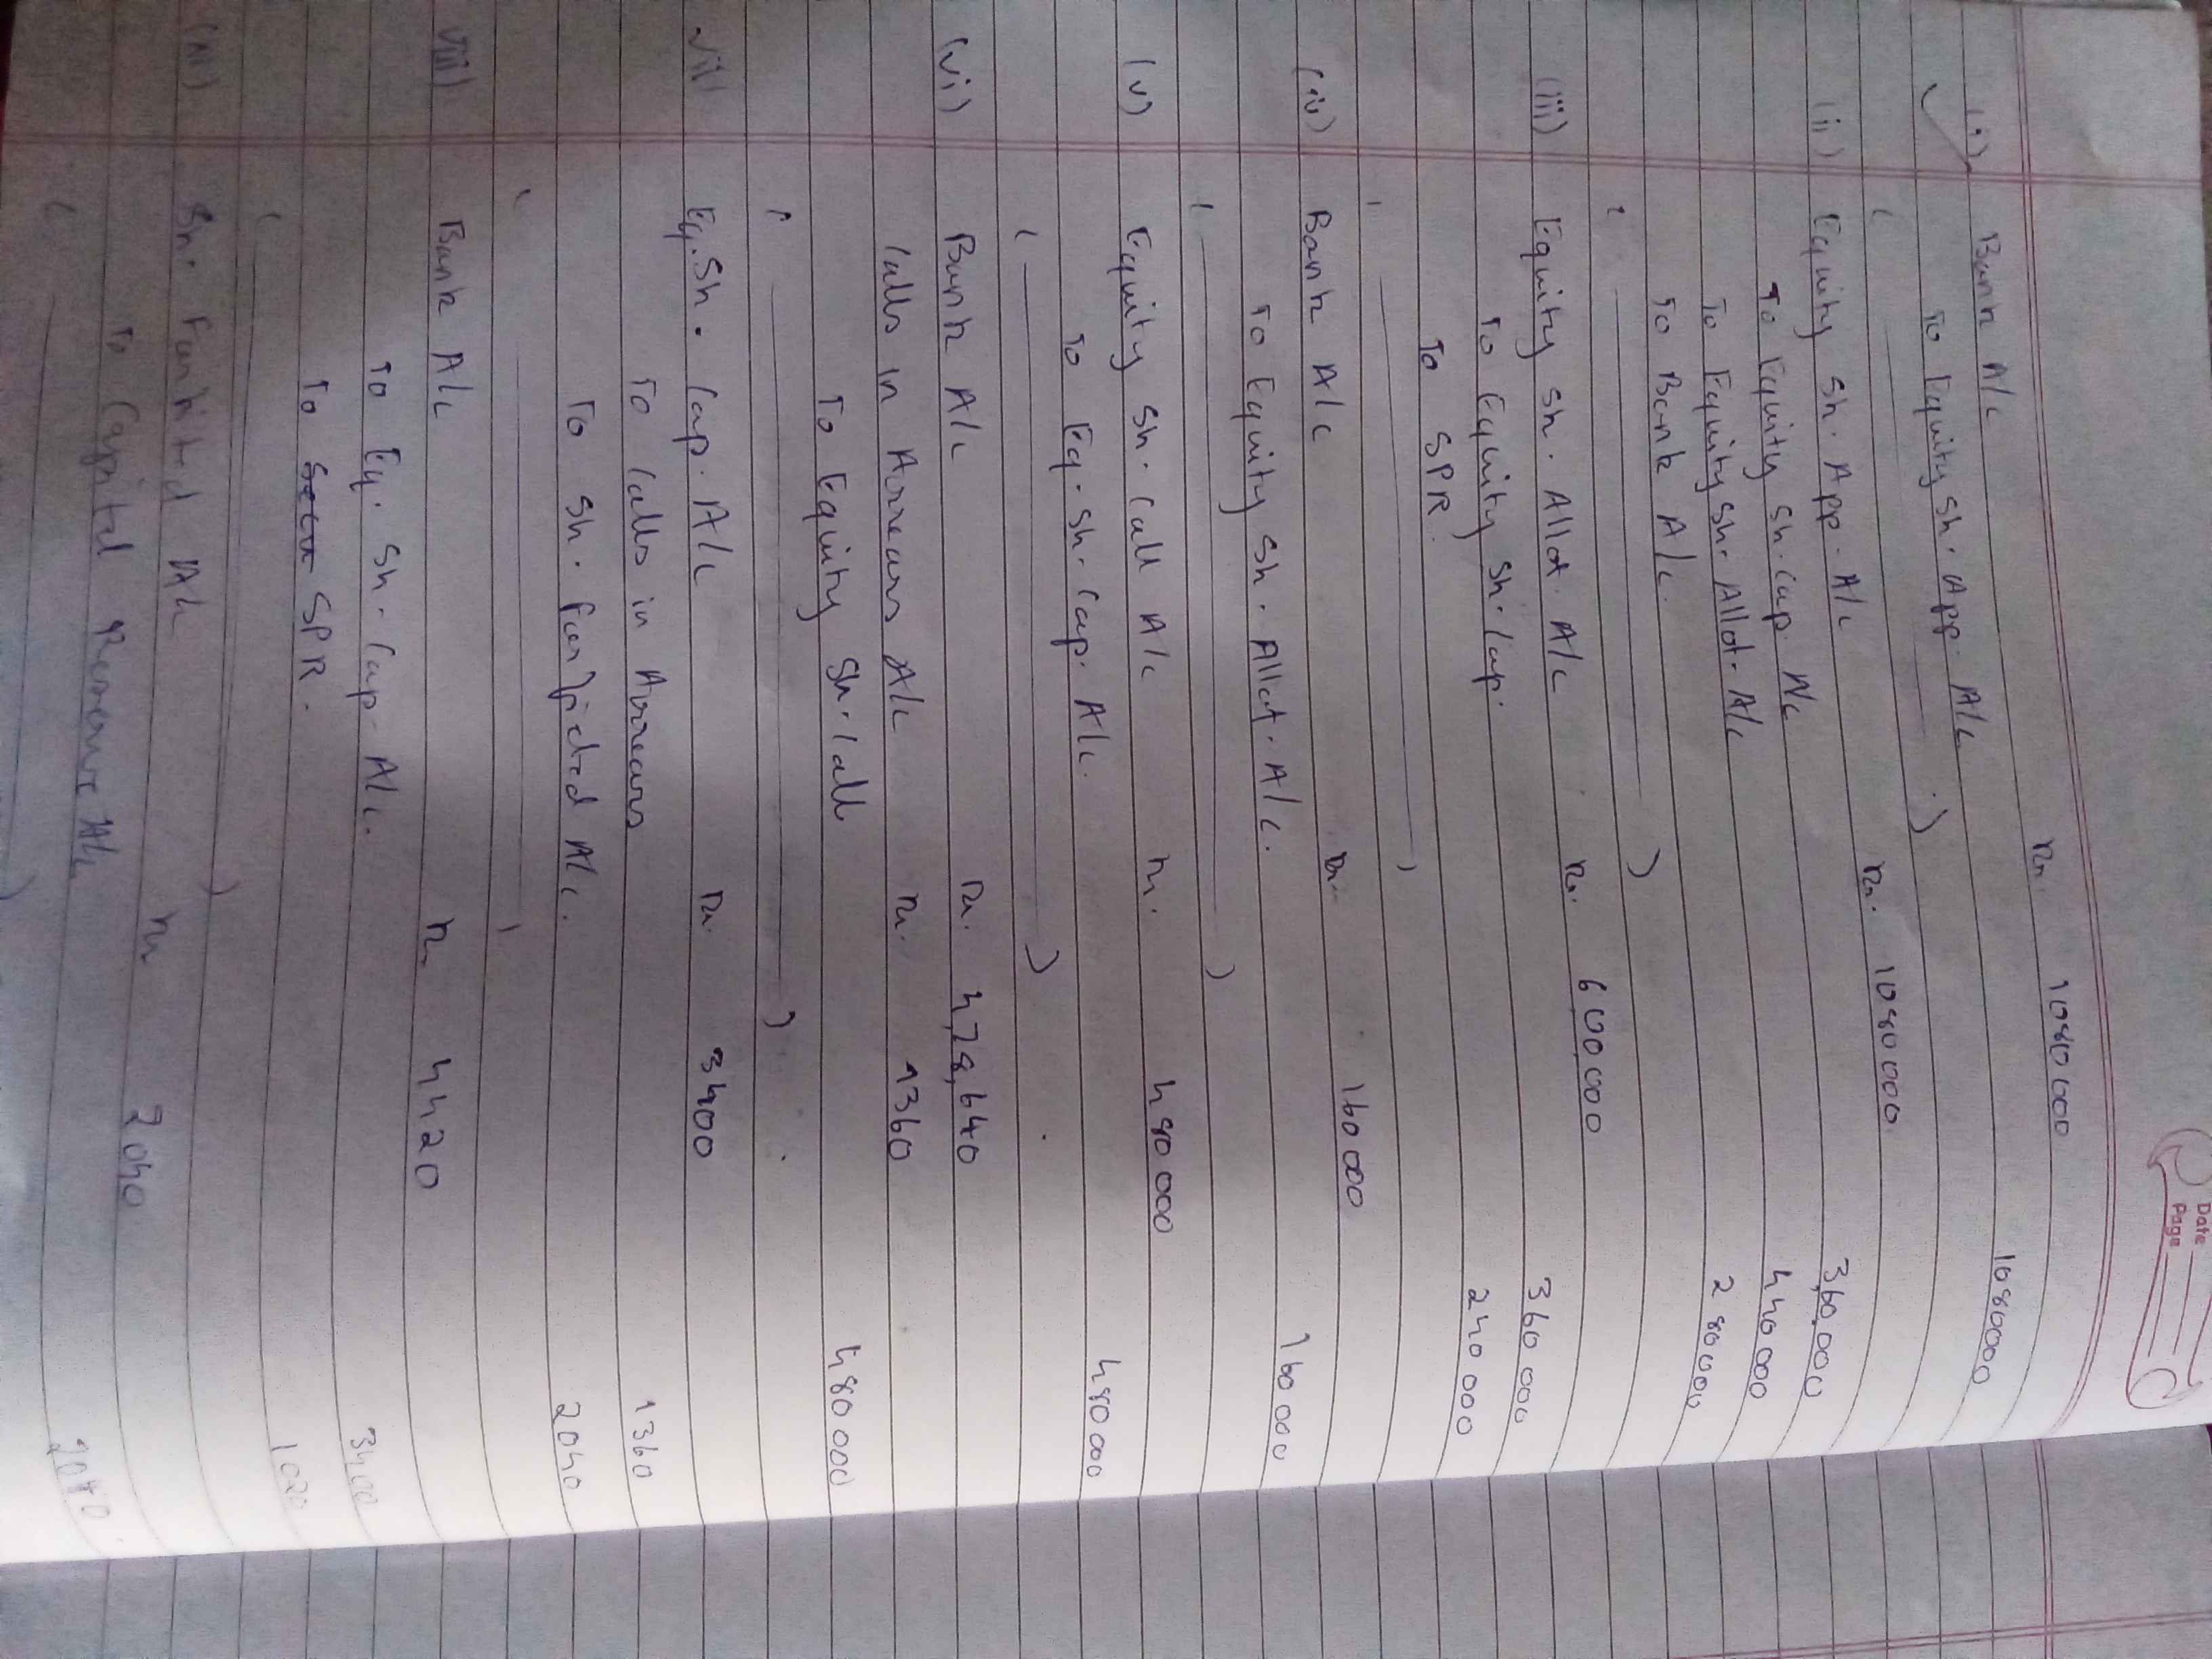 Date
Page
(i) Bank A/c Dr. 1080000
To Equity Sh. App. A/c 1080000
( )
(ii) Equity Sh. App. A/c Dr. 1080000
To Equity Sh. Cap A/c 3,60,000
To Equity Sh. Allot. A/c 440000
To Bank A/c. 280000
( )
(iii) Equity Sh. Allot. A/c Dr. 600000
To Equity Sh. Cap. 360000
To SPR. 240000
( )
(iv) Bank A/c Dr. 160000
To Equity Sh. Allot. A/c. 160000
( )
(v) Equity Sh. Call A/c Dr. 480000
To Eq. Sh. Cap. A/c. 480000
( )
(vi) Bank A/c Dr. 4,78,640
Calls in Arrears A/c Dr. 1360
To Equity Sh. Call 480000
( )
vii) Eq. Sh. Cap. A/c Dr. 3400
To Calls in Arrears 1360
To Sh. Forfieted A/c. 2040
( )
viii) Bank A/c Dr 4420
To Eq. Sh. Cap. A/c. 3400
To SPR. 1020
( )
Sh. Forfited A/c Dr 2040
To Capital Reserve A/c 2040
( )